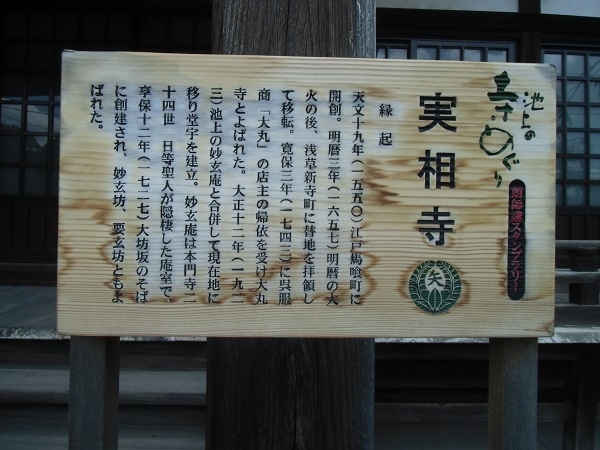 池上の
寺めぐり
御師濱スタンプラリー
実相寺
矢
縁起
天文十九年(一五五〇)江戸馬喰町に
開創。明暦三年(一六五七)明暦の大
火の後、浅草新寺町に替地を拝領し
て移転。寛保三年(一七四三)に呉服
商「大丸」の店主の帰依を受け大丸
寺とよばれた。大正十二年(一九二
三)池上の妙玄庵と合併して現在地に
移り堂宇を建立。妙玄庵は本門寺二
十四世 日等聖人が隠棲した庵室で、
享保十二年(一七二七)大坊坂のそば
に創建され、妙玄坊、要玄坊ともよ
ばれた。